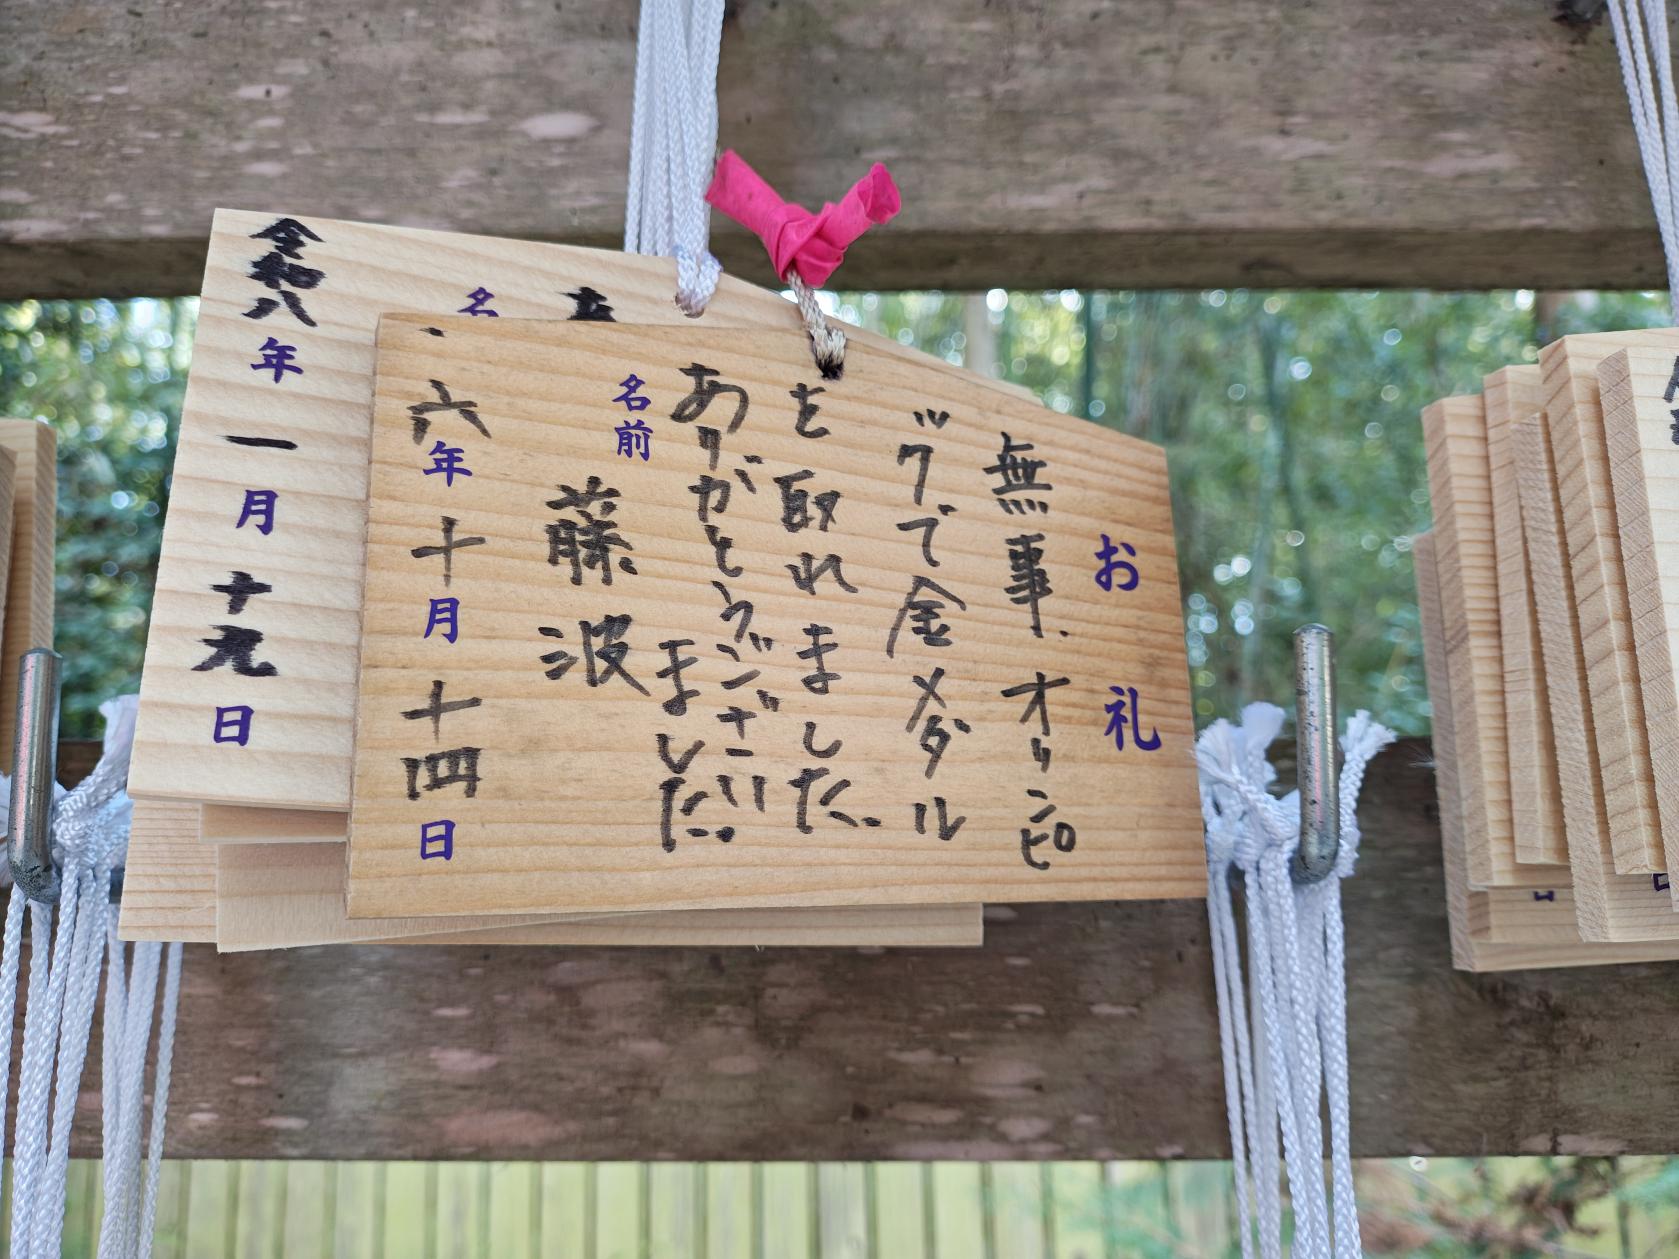 お礼
無事、オリンピ
ックで金メダル
を取れました。
ありがとうござい
ました。
名前 藤波
六年十月十四日
名
令和八年一月十九日